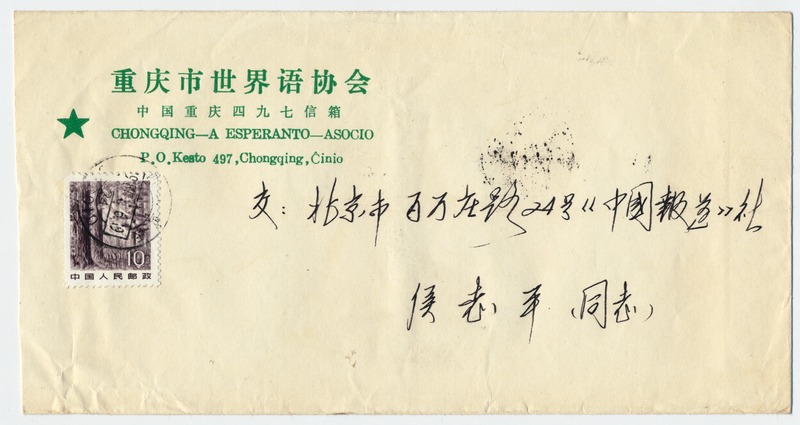 重庆市世界语协会
中国重庆四九七信箱
CHONGQING—A ESPERANTO—ASOCIO
P.O.Kesto 497,Chongqing,Ĉinio
10
中国人民邮政
交：北京市百万庄路24号《中國報道》社
侯志平（同志）